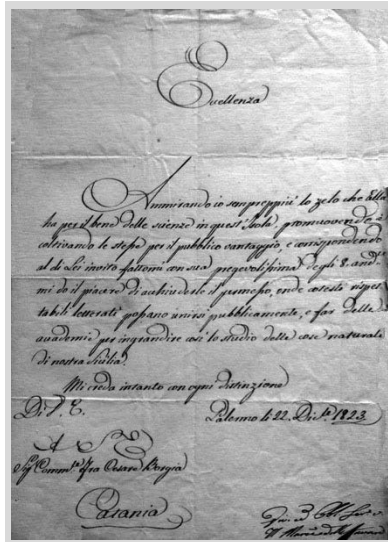 Eccellenza
Ammirando io sempreppiù lo zelo che Ella
ha per il bene delle scienze in quest'Isola, promuovendo e
coltivando le stesse per il pubblico vantaggio, e corrispondendo
al di Lei invito fattomi con sua pregevolissima degli 8. and.e
mi do il piacere di acchiuderle il permesso, onde cotesti rispet
tabili letterati possano unirsi pubblicamente, e far delle
accademie per ingrandire così lo studio delle cose naturali
di nostra Sicilia.
Mi creda intanto con ogni distinzione
Di V. E.
Palermo li 22. Dic.e 1823.
A S E
Sig.r Comm.re Fra Cesare Borgia
Catania